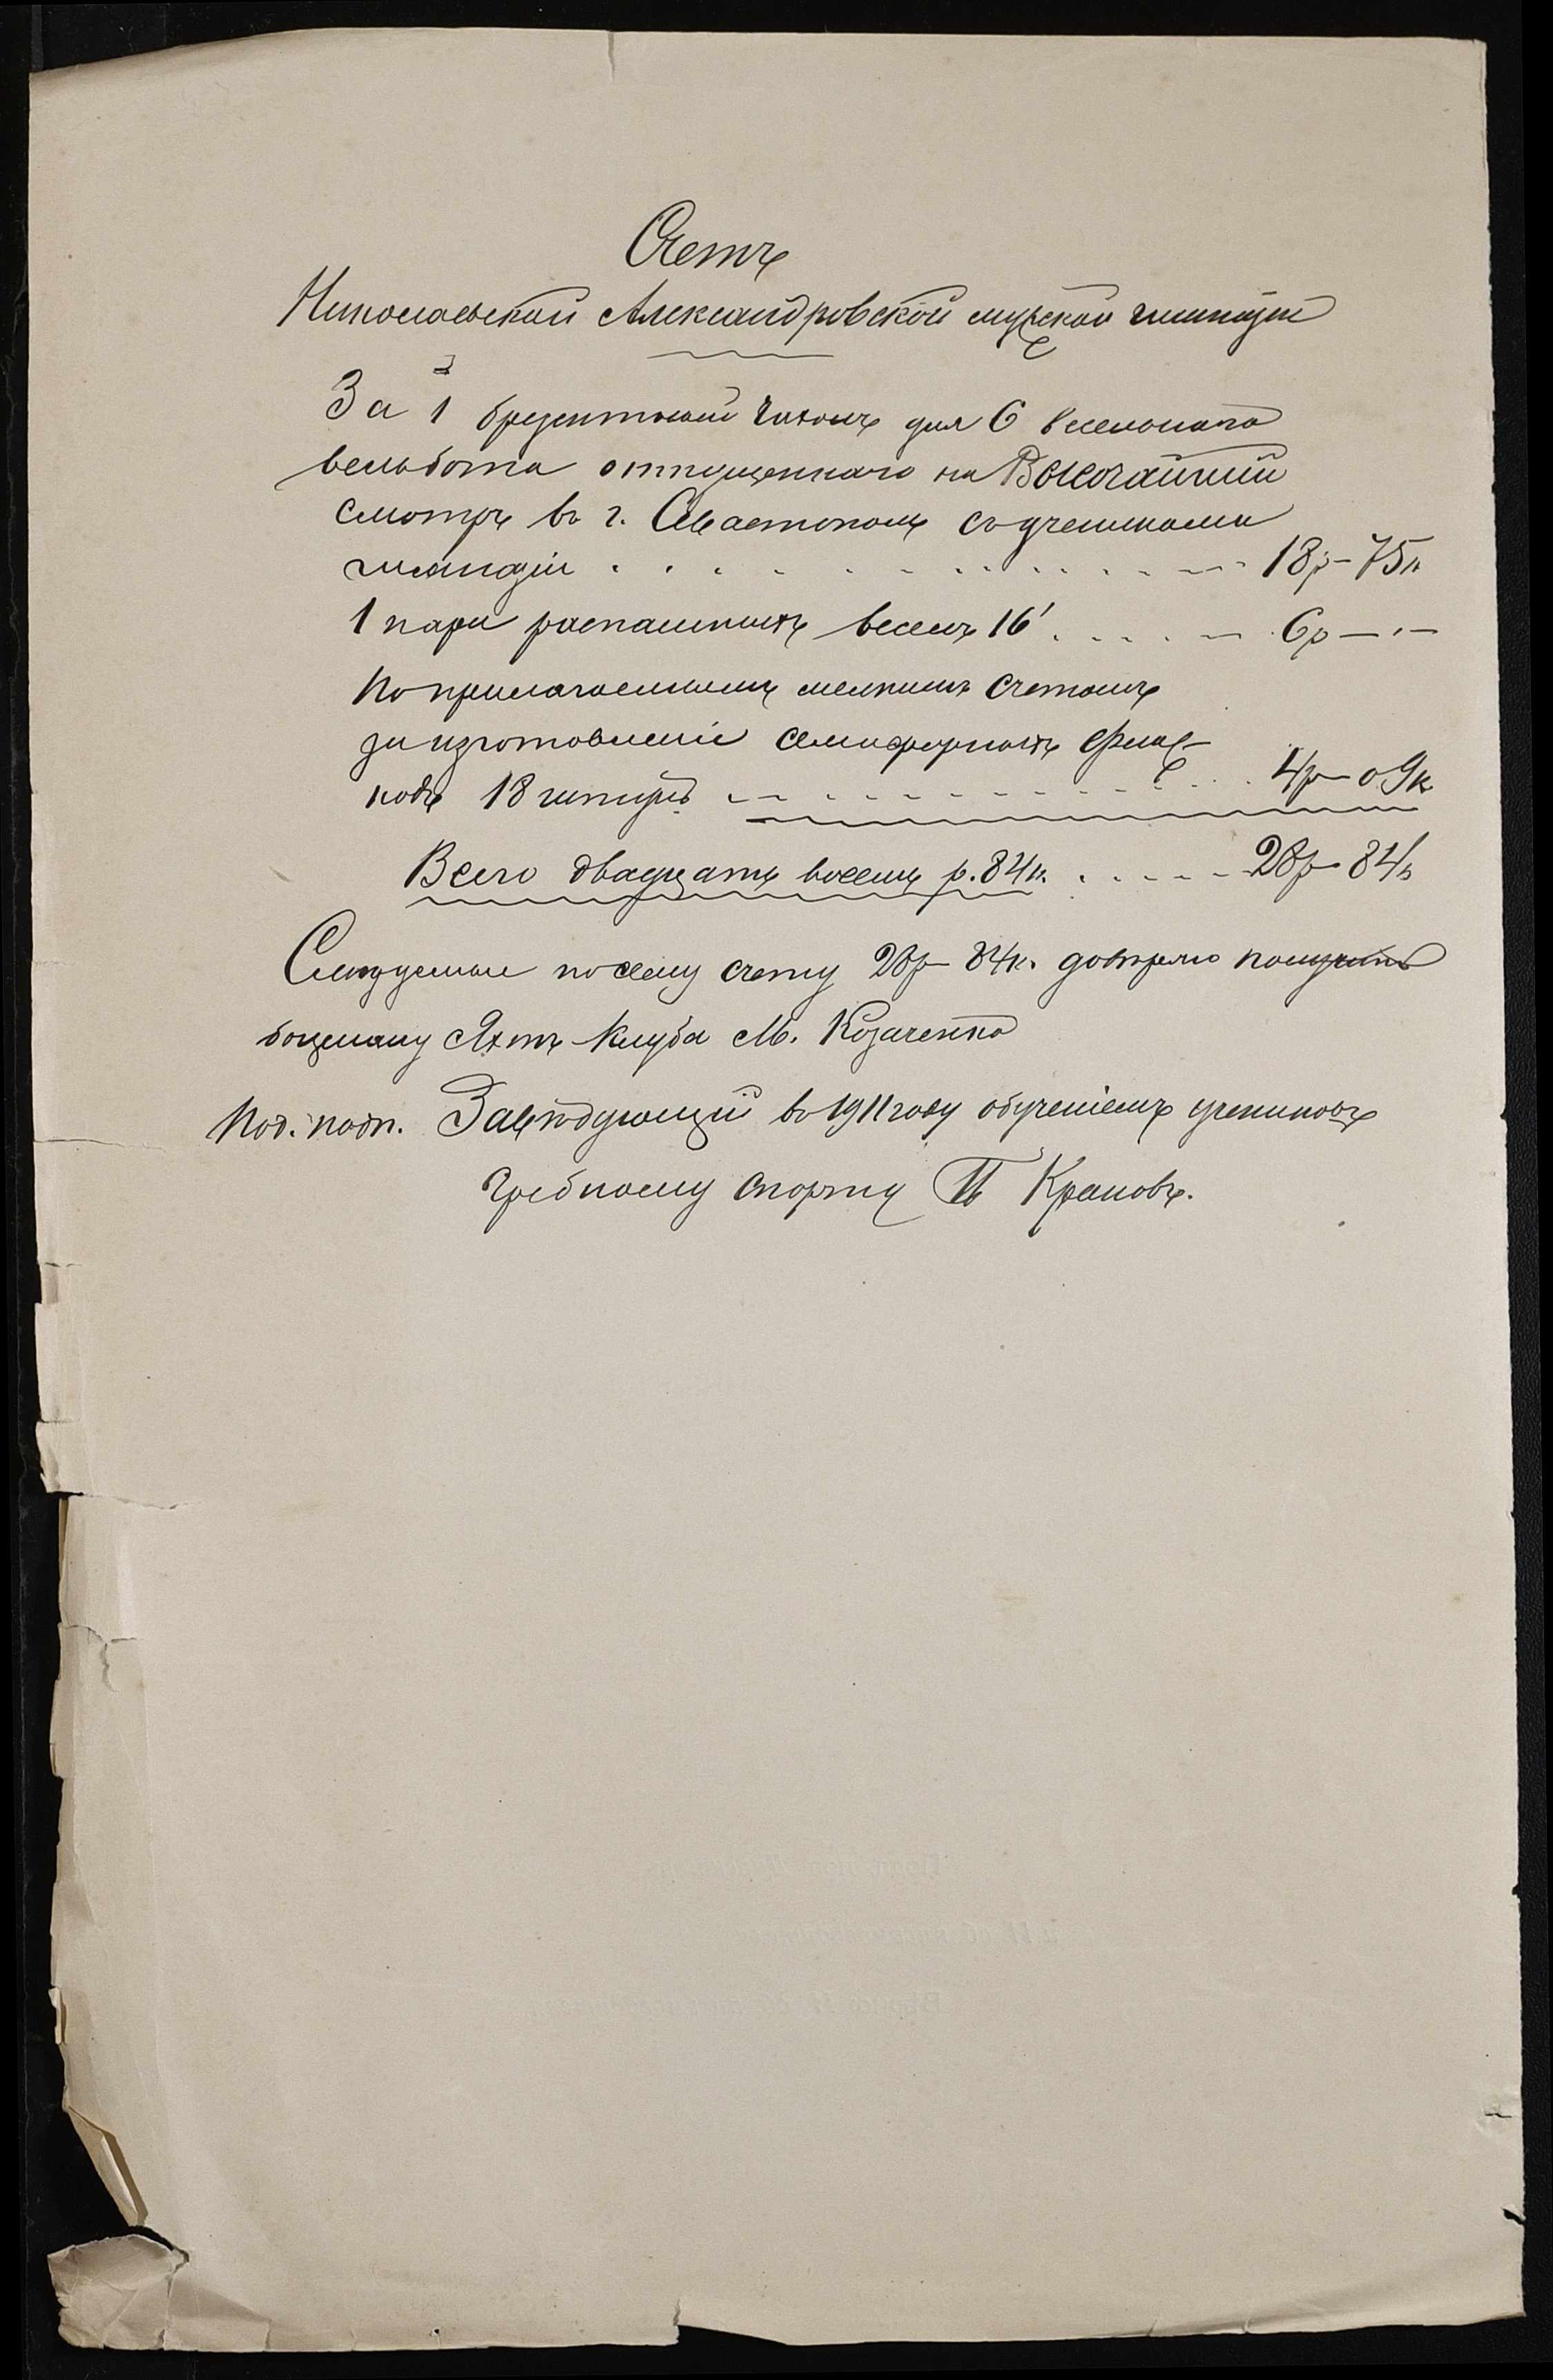 Счетъ
Николаевской Александровской мужской гимназіи
За 1 брезентовый чехолъ для 6 весельнаго
вельбота отпущеннаго на Высочайшій
смотръ въ г. Севастополь съ учениками
гимназіи . . . . . . . . . . . . 18р-75к
1 пара распашныхъ веселъ 16' . . . . . 6р — " —
По прилагаемымъ мелкимъ счетамъ
за изготовленіе семафорныхъ флаж-
ковъ 18 штукъ . . . . . . . . . . 4р-09к
Всего двадцать восемь р. 84к. . . . . . 28р-84к
Слѣдуемые по сему счету 28р-84к. довѣряю получить
боцману Яхтъ-Клуба М. Козаченко
Под. подп. Завѣдующій въ 1911 году обученіемъ учениковъ
гребному спорту П Крановъ.